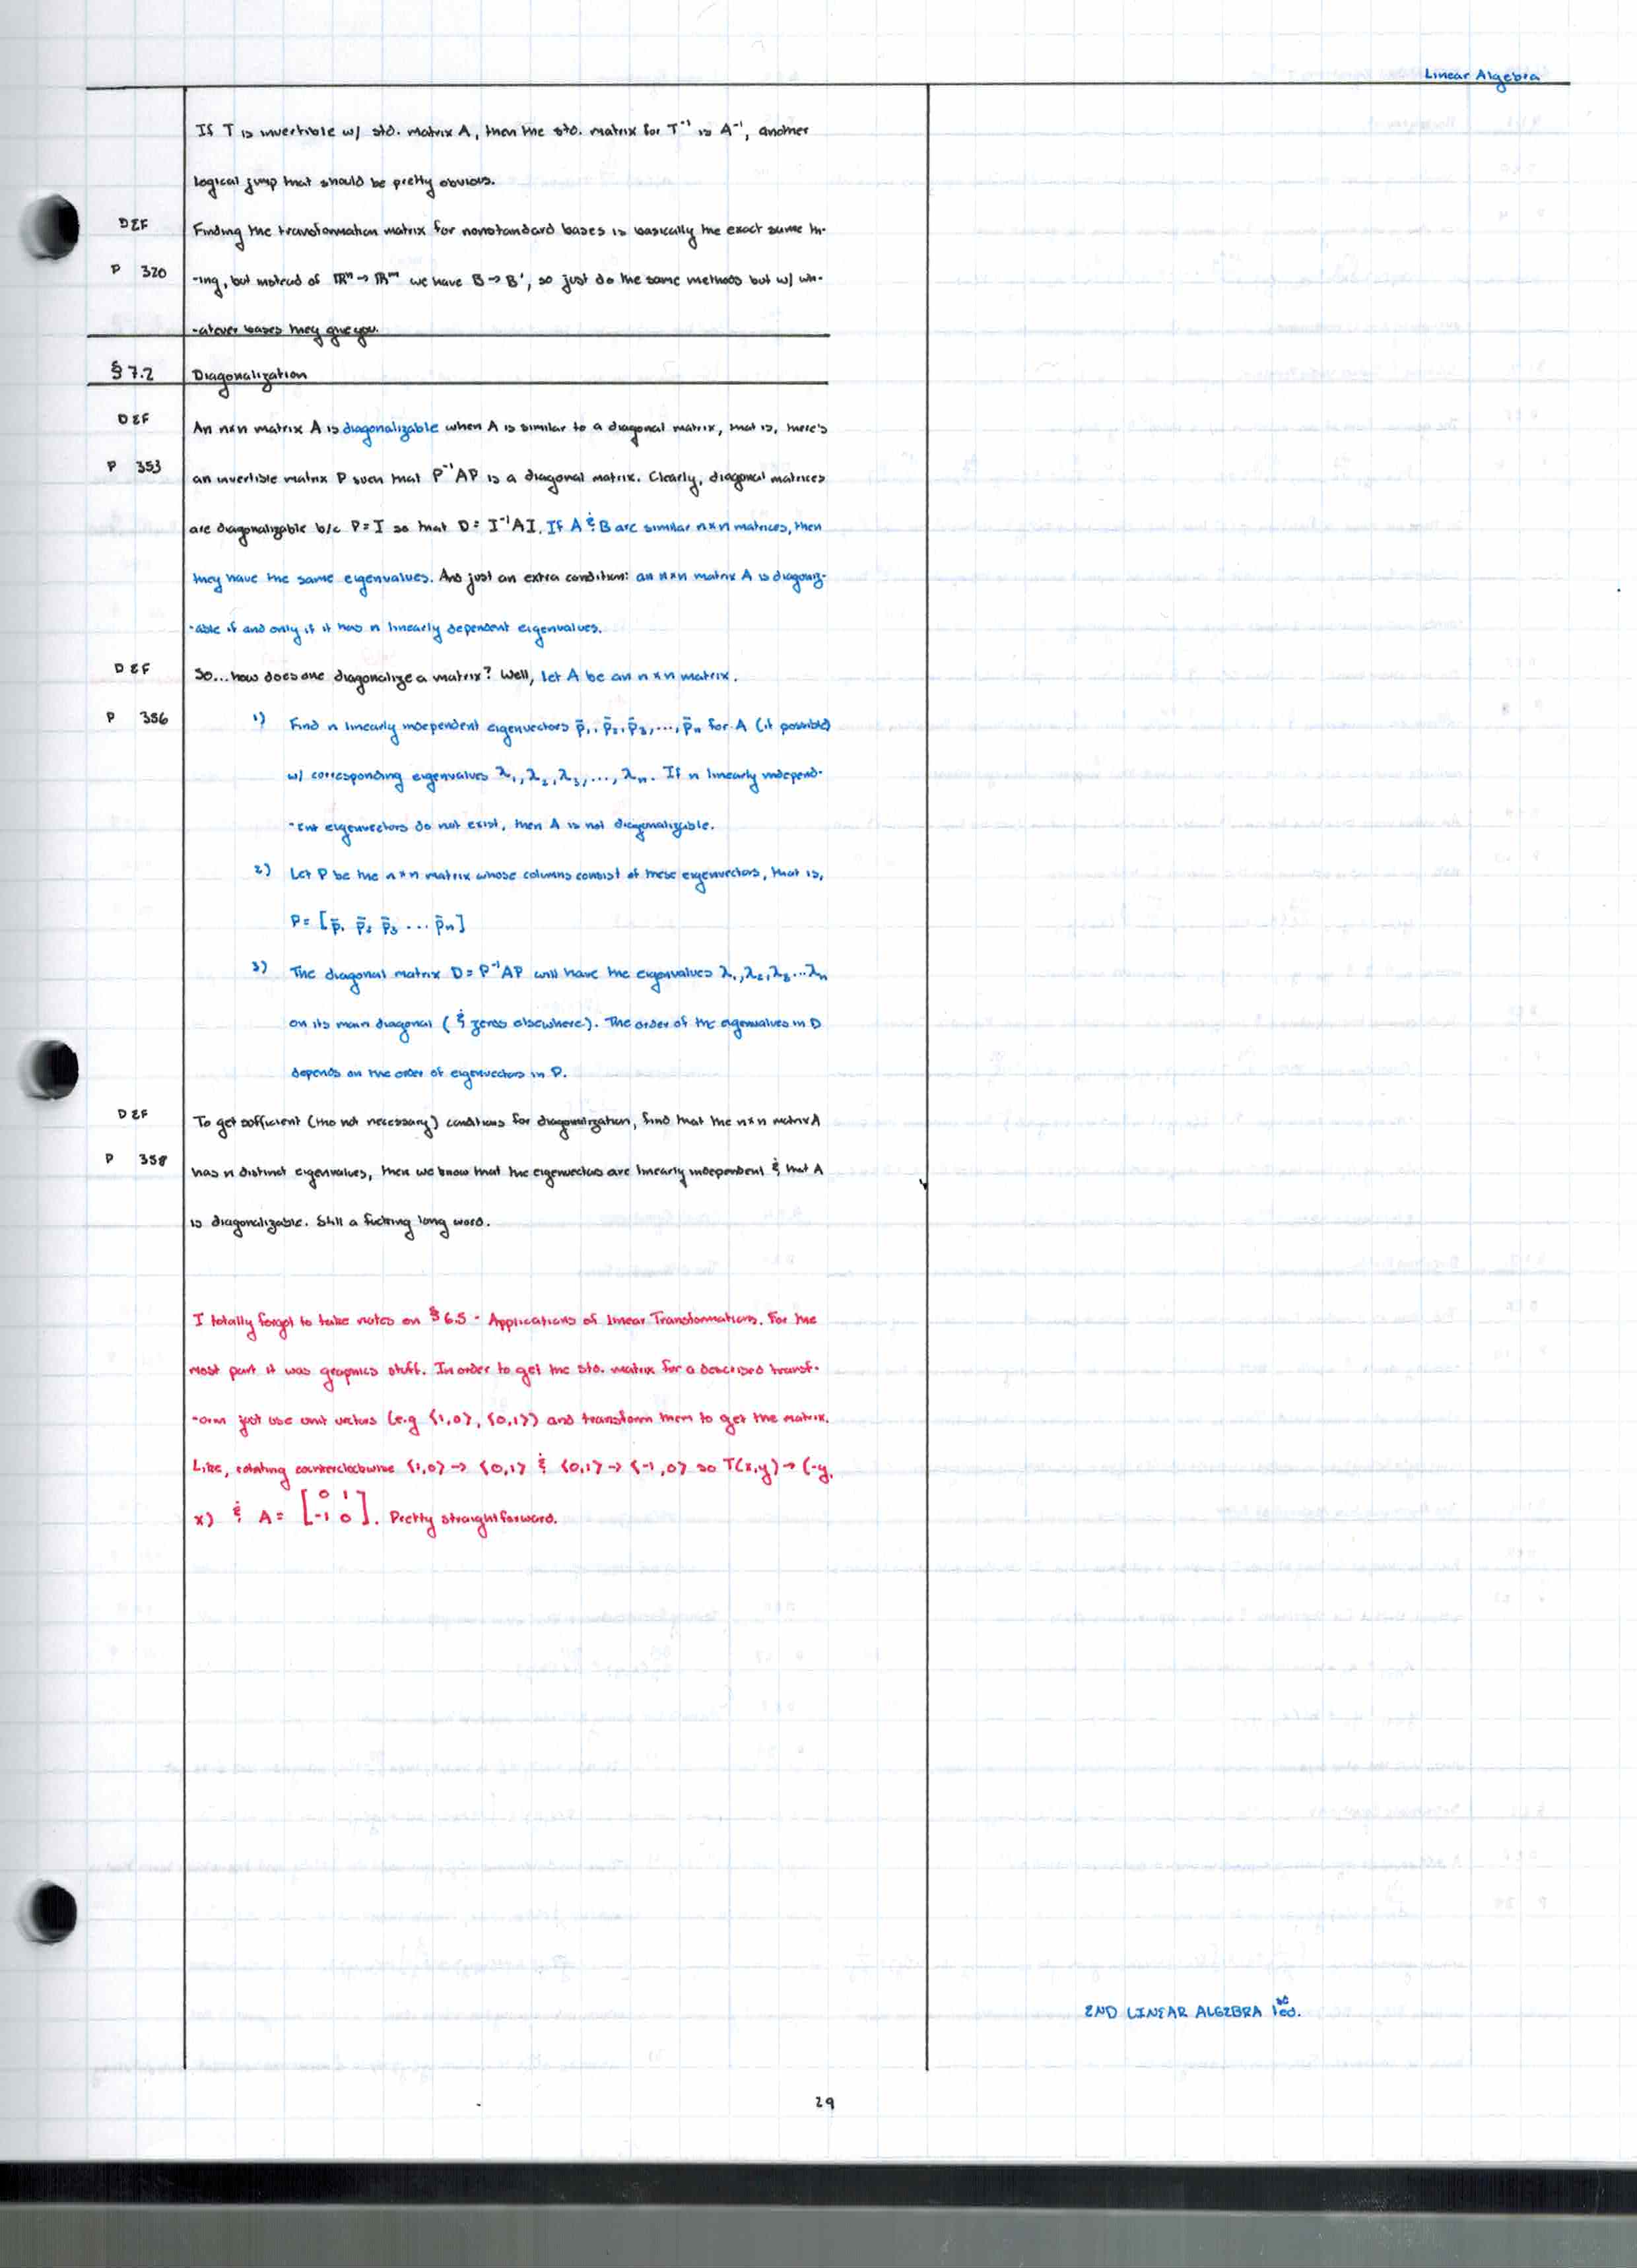 Linear Algebra
If T is invertible w/ std. matrix A, then the std. matrix for T⁻¹ is A⁻¹, another
logical jump that should be pretty obvious.
DEF
Finding the transformation matrix for nonstandard bases is basically the exact same th-
P 320
-ing, but instead of ℝⁿ → ℝᵐ we have B → B', so just do the same methods but w/ wh-
-atever bases they give you.
§ 7.2 Diagonalization
DEF
An n×n matrix A is diagonalizable when A is similar to a diagonal matrix, that is, there's
P 353
an invertible matrix P such that P⁻¹AP is a diagonal matrix. Clearly, diagonal matrices
are diagonalizable b/c P = I so that D = I⁻¹AI. If A & B are similar n×n matrices, then
they have the same eigenvalues. And just an extra condition: an n×n matrix A is diagonliz-
-able if and only if it has n linearly dependent eigenvalues.
DEF
So... how does one diagonalize a matrix? Well, let A be an n×n matrix.
P 356
1) Find n linearly independent eigenvectors p̄₁, p̄₂, p̄₃, ..., p̄ₙ for A (if possible)
w/ corresponding eigenvalues λ₁, λ₂, λ₃, ..., λₙ. If n linearly independ-
-ent eigenvectors do not exist, then A is not diagonalizable.
2) Let P be the n×n matrix whose columns consist of these eigenvectors, that is,
P = [p̄₁ p̄₂ p̄₃ ... p̄ₙ]
3) The diagonal matrix D = P⁻¹AP will have the eigenvalues λ₁, λ₂, λ₃ ... λₙ
on its main diagonal (& zeros elsewhere). The order of the eigenvalues in D
depends on the order of eigenvectors in P.
DEF
To get sufficient (tho not necessary) conditions for diagonalization, find that the n×n matrix A
P 358
has n distinct eigenvalues, then we know that the eigenvectors are linearly independent & that A
is diagonalizable. Still a fucking long word.
I totally forgot to take notes on § 6.5 - Applications of linear Transformations. For the
most part it was graphics stuff. In order to get the std. matrix for a described transf-
-orm just use unit vectors (e.g ⟨1,0⟩, ⟨0,1⟩) and transform them to get the matrix.
Like, rotating counterclockwise ⟨1,0⟩ → ⟨0,1⟩ & ⟨0,1⟩ → ⟨-1,0⟩ so T(x,y) → (-y,
x) & A = [0 1
-1 0]. Pretty straightforward.
END LINEAR ALGEBRA
29